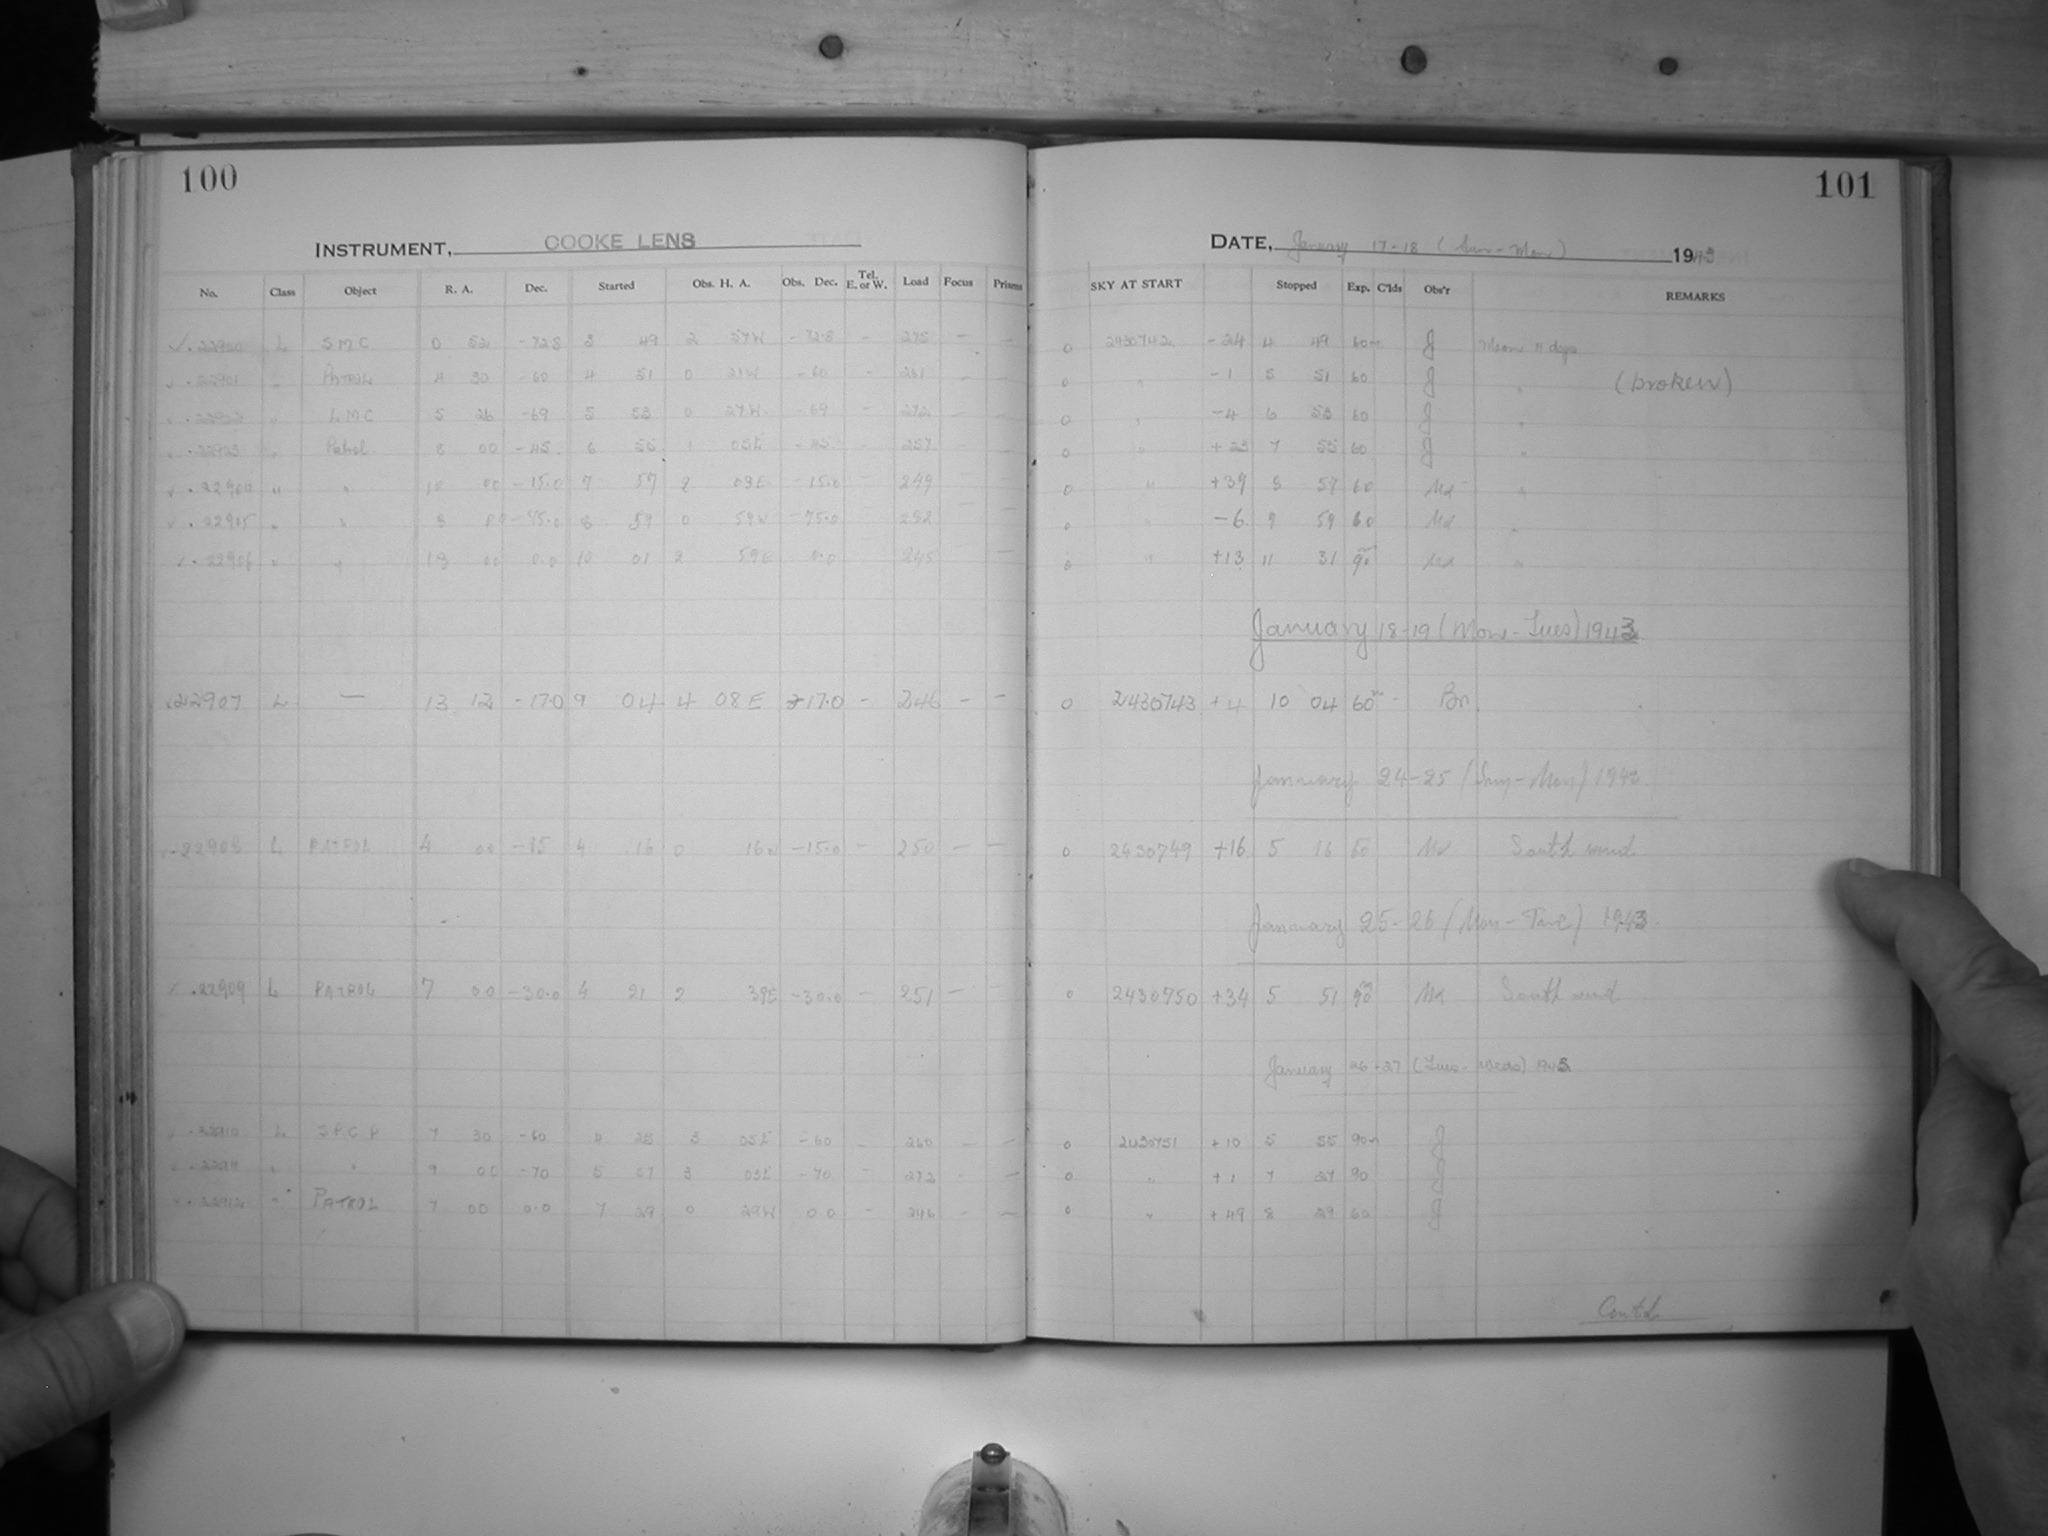 100
INSTRUMENT, COOKE LENS
No. Class Object R. A. Dec. Started Obs. H. A. Obs. Dec. Tel. E. or W. Load Focus Prisms
✓.22900 L SMC 0 52 -72.8 3 49 2 57W -72.8 - 275 - -
✓.22901 " PATROL 4 30 -60 4 51 0 21W -60 - 261 - -
✓.22902 " LMC 5 26 -69 5 53 0 27W -69 - 272 - -
✓.22903 " Patrol 8 00 -45 6 55 1 05E -45 - 257 - -
✓.22904 " " 10 00 -15.0 7 57 2 03E -15.0 - 249 - -
✓.22905 " " 8 00 -75.0 8 59 0 59W -75.0 - 282 - -
✓.22906 " " 13 00 0.0 10 01 2 59E 0.0 - 245 - -
22907 L — 13 12 -17.0 9 04 4 08 E -17.0 - 246 - -
.22908 L PATROL 4 00 -15 4 16 0 16W -15.0 - 250 - -
✓.22909 L PATROL 7 00 -30.0 4 21 2 39E -30.0 - 251 - -
✓.22910 L S.P.C.P 7 30 -60 4 25 3 05E -60 - 260 - -
✓.22911 " " 9 00 -70 5 57 3 03E -70 - 272 - -
✓.22912 " PATROL 7 00 0.0 7 29 0 29W 0 0 - 246 - -
101
DATE, January 17-18 (Sun-Mon) 1943
SKY AT START Stopped Exp. C'lds Obs'r REMARKS
0 2430742 -24 4 49 60m J Moon 11 days
0 " -1 5 51 60 J " (broken)
0 " -4 6 53 60 J "
0 " +23 7 55 60 J "
0 " +39 8 57 60 "
0 " -6 9 59 60 "
0 " +13 11 31 90m "
January 18-19 (Mon-Tues) 1943
0 2430743 +4 10 04 60m - Bn.
January 24-25 (Sun-Mon) 1943
0 2430749 +16 5 16 60 South wind
January 25-26 (Mon-Tue) 1943.
0 2430750 +34 5 51 90m South wind
January 26-27 (Tues-Weds) 1943
0 2430751 +10 5 55 90m J
0 " +1 7 27 90 J
0 " +49 8 29 60 J
Contd.